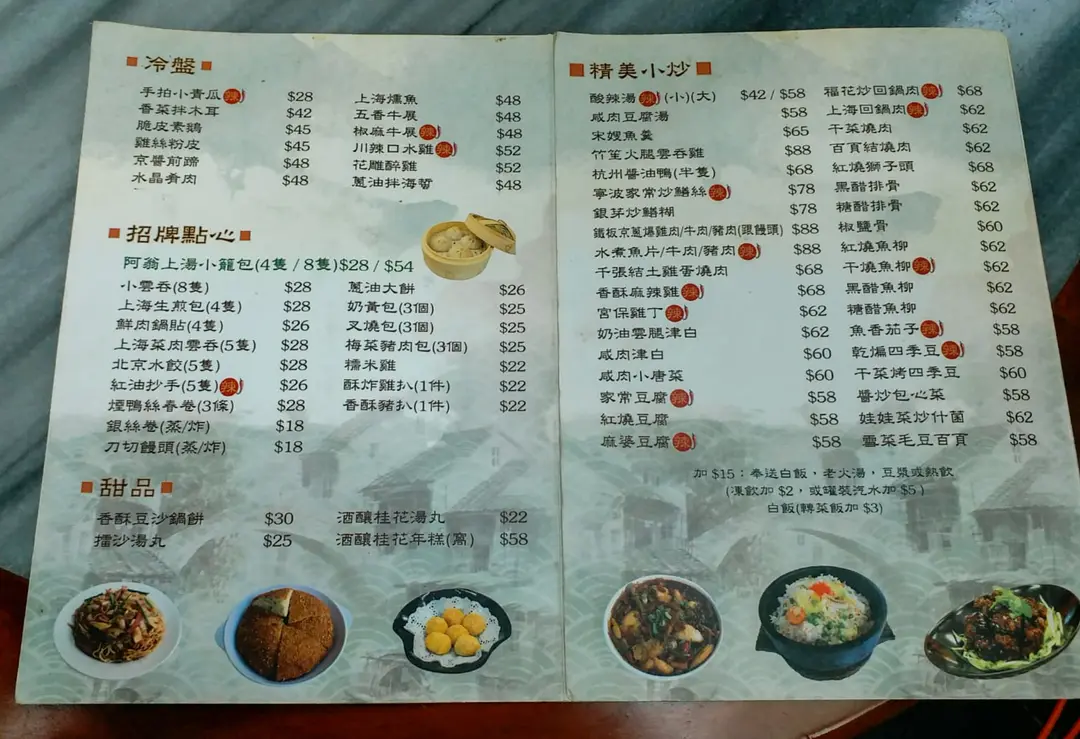 冷盤
手拍小青瓜辣 $28
香菜拌木耳 $42
脆皮素鵝 $45
雞絲粉皮 $45
京醬煎蹄 $48
水晶肴肉 $48
上海燻魚 $48
五香牛展 $48
椒麻牛展辣 $48
川辣口水雞辣 $52
花雕醉雞 $52
蔥油拌海蜇 $48
招牌點心
阿翁上湯小籠包(4隻 / 8隻)$28 / $54
小雲吞(8隻) $28
上海生煎包(4隻) $28
鮮肉鍋貼(4隻) $26
上海菜肉雲吞(5隻) $28
北京水餃(5隻) $28
紅油抄手(5隻)辣 $26
煙鴨絲春卷(3條) $28
銀絲卷(蒸/炸) $18
刀切饅頭(蒸/炸) $18
蔥油大餅 $26
奶黃包(3個) $25
叉燒包(3個) $25
梅菜豬肉包(3個) $25
糯米雞 $22
酥炸雞扒(1件) $22
香酥豬扒(1件) $22
甜品
香酥豆沙鍋餅 $30
擂沙湯丸 $25
酒釀桂花湯丸 $22
酒釀桂花年糕(窩) $58
精美小炒
酸辣湯辣(小)(大) $42 / $58
咸肉豆腐湯 $58
宋嫂魚羹 $65
竹笙火腿雲吞雞 $88
杭州醬油鴨(半隻) $68
寧波家常炒鱔絲辣 $78
銀芽炒鱔糊 $78
鐵板京蔥爆雞肉/牛肉/豬肉(跟饅頭) $88
水煮魚片/牛肉/豬肉辣 $88
千張結土雞蛋燒肉 $68
香酥麻辣雞辣 $68
宮保雞丁辣 $62
奶油雲腿津白 $62
咸肉津白 $60
咸肉小唐菜 $60
家常豆腐辣 $58
紅燒豆腐 $58
麻婆豆腐辣 $58
福花炒回鍋肉辣 $68
上海回鍋肉辣 $62
干菜燒肉 $62
百頁結燒肉 $62
紅燒獅子頭 $68
黑醋排骨 $62
糖醋排骨 $62
椒鹽骨 $60
紅燒魚柳 $62
干燒魚柳辣 $62
黑醋魚柳 $62
糖醋魚柳 $62
魚香茄子辣 $58
乾煸四季豆辣 $58
干菜烤四季豆 $60
醬炒包心菜 $58
娃娃菜炒什菌 $62
雪菜毛豆百頁 $58
加 $15：奉送白飯，老火湯，豆漿或熱飲
(凍飲加 $2，或罐裝汽水加 $5 )
白飯(轉菜飯加 $3)